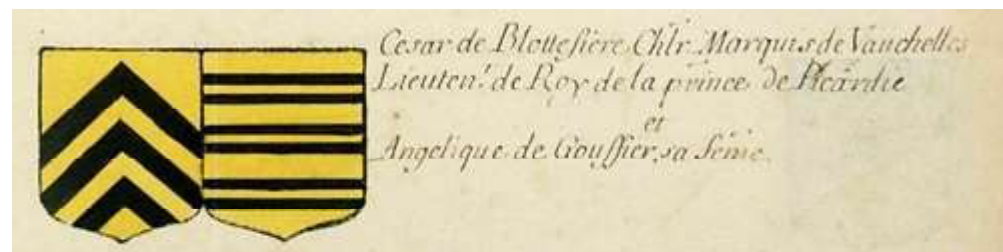 Cesar de Blottefiére Chlr. Marquis de Vauchelles
Lieuten.t de Roy de la prince de Picardie
et
Angelique de Gouffier, sa féme.